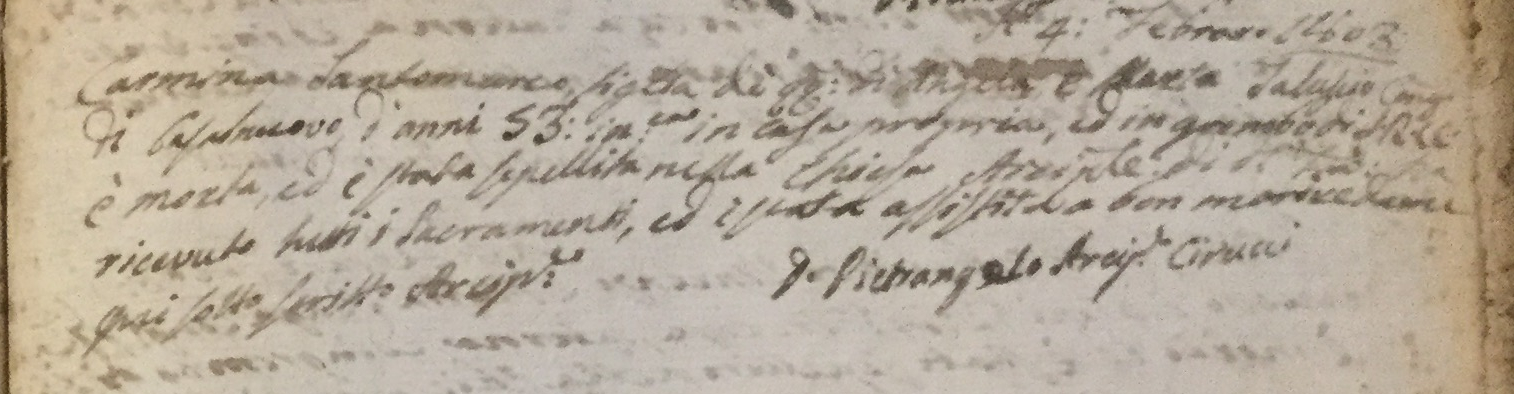 A 4: Febraro 1803
Carmina Santomarco figlia di qq: di Angela e Maria Salusio Coniug
di Casalnuovo d'anni 53: in:ca in casa propria, ed in grembo di S.R.C.
è morta, ed è stata sepellita nella Chiesa Arciple. di S.
ricevuto tutti i Sacramenti, ed è stata assistita a ben morire da me
qui sotto scritto Arcip.te
D. Pietrangelo Arcip.e Cirucci